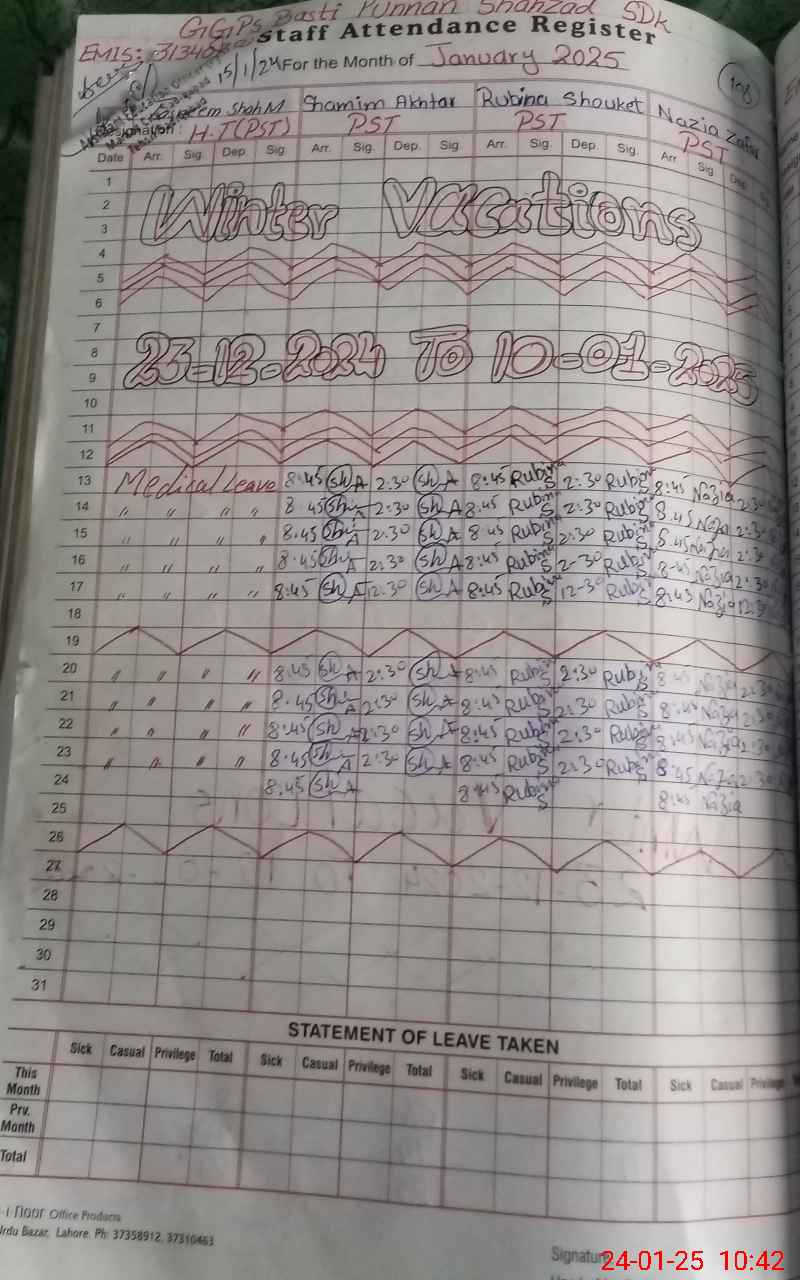 GGPS Basti Punnan Shahzad SDK
Staff Attendance Register
EMIS: 3134
15/1/24 For the Month of January 2025
108
Shah M Shamim Akhtar Rubina Shouket Nazia
H.T (PST) PST PST PST
Date Arr. Sig. Dep Sig. Arr. Sig. Dep. Sig. Arr. Sig. Dep. Sig. Arr. Sig. Dep
1
2 Winter Vacations
3
4
5
6
7
8 23-12-2024 To 10-01-2025
9
10
11
12
13 Medical Leave 8:45 Sh A 2:30 Sh A 8:45 Rubina S 2:30 Rubina S 8:45 Nazia 2:30
14 〃 〃 〃 〃 8:45 Sh A 2:30 Sh A 8:45 Rubina S 2:30 Rubina S 8:45 Nazia 2:30
15 〃 〃 〃 〃 8:45 Sh A 2:30 Sh A 8:45 Rubina S 2:30 Rubina S 8:45 Nazia 2:30
16 〃 〃 〃 〃 8:45 Sh A 2:30 Sh A 8:45 Rubina S 2-30 Rubina S 8:45 Nazia 2:30
17 〃 〃 〃 〃 8:45 Sh A 12:30 Sh A 8:45 Rubina S 12-30 Rubina S 8:45 Nazia 12:30
18
19
20 〃 〃 〃 〃 8:45 Sh A 2:30 Sh A 8:45 Rubina S 2:30 Rubina S 8:45 Nazia 2:30
21 〃 〃 〃 〃 8:45 Sh A 2:30 Sh A 8:45 Rubina S 2:30 Rubina S 8:45 Nazia 2:30
22 〃 〃 〃 〃 8:45 Sh A 2:30 Sh A 8:45 Rubina S 2:30 Rubina S 8:45 Nazia 2:30
23 〃 〃 〃 〃 8:45 Sh A 2:30 Sh A 8:45 Rubina S 2:30 Rubina S 8:45 Nazia 2:30
24 8:45 Sh A 8:45 Rubina S 8:45 Nazia
25
26
27
28
29
30
31
STATEMENT OF LEAVE TAKEN
Sick Casual Privilege Total Sick Casual Privilege Total Sick Casual Privilege Total Sick Casual Privilege
This Month
Prv. Month
Total
Office Products
Urdu Bazar, Lahore. Ph: 37358912, 37310463
Signature
24-01-25 10:42